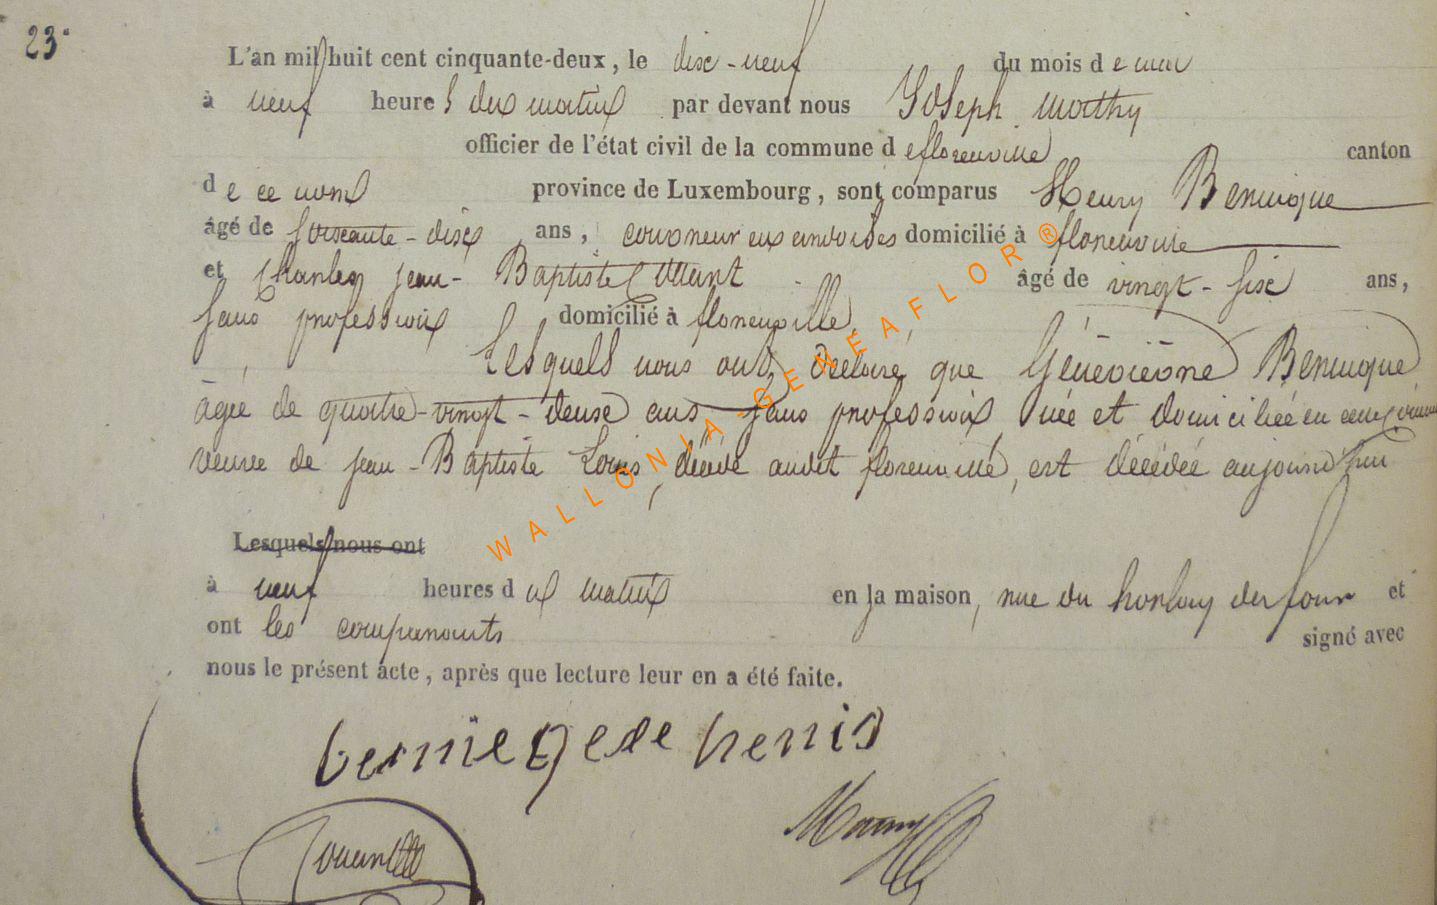 23.
L'an mil huit cent cinquante-deux, le dix-neuf du mois de mai
à neuf heures du matin par devant nous Joseph
officier de l'état civil de la commune de florenville canton
de ce nom province de Luxembourg, sont comparus Henry Bernique
âgé de soixante-dix ans, domicilié à florenville
et Charles jean-Baptiste âgé de vingt-six ans,
sans profession domicilié à florenville,
Lesquels nous ont déclaré que Géneviève Bernique
âgée de quatre-vingt-deux ans sans profession née et domiciliée en
veuve de jean-Baptiste Louis, décédé audit florenville, est décédée aujourd'hui
Lesquels nous ont
à neuf heures du matin en la maison, rue du four et
ont les comparants signé avec
nous le présent acte, après que lecture leur en a été faite.
WALLONIA-GENEAFLOR®